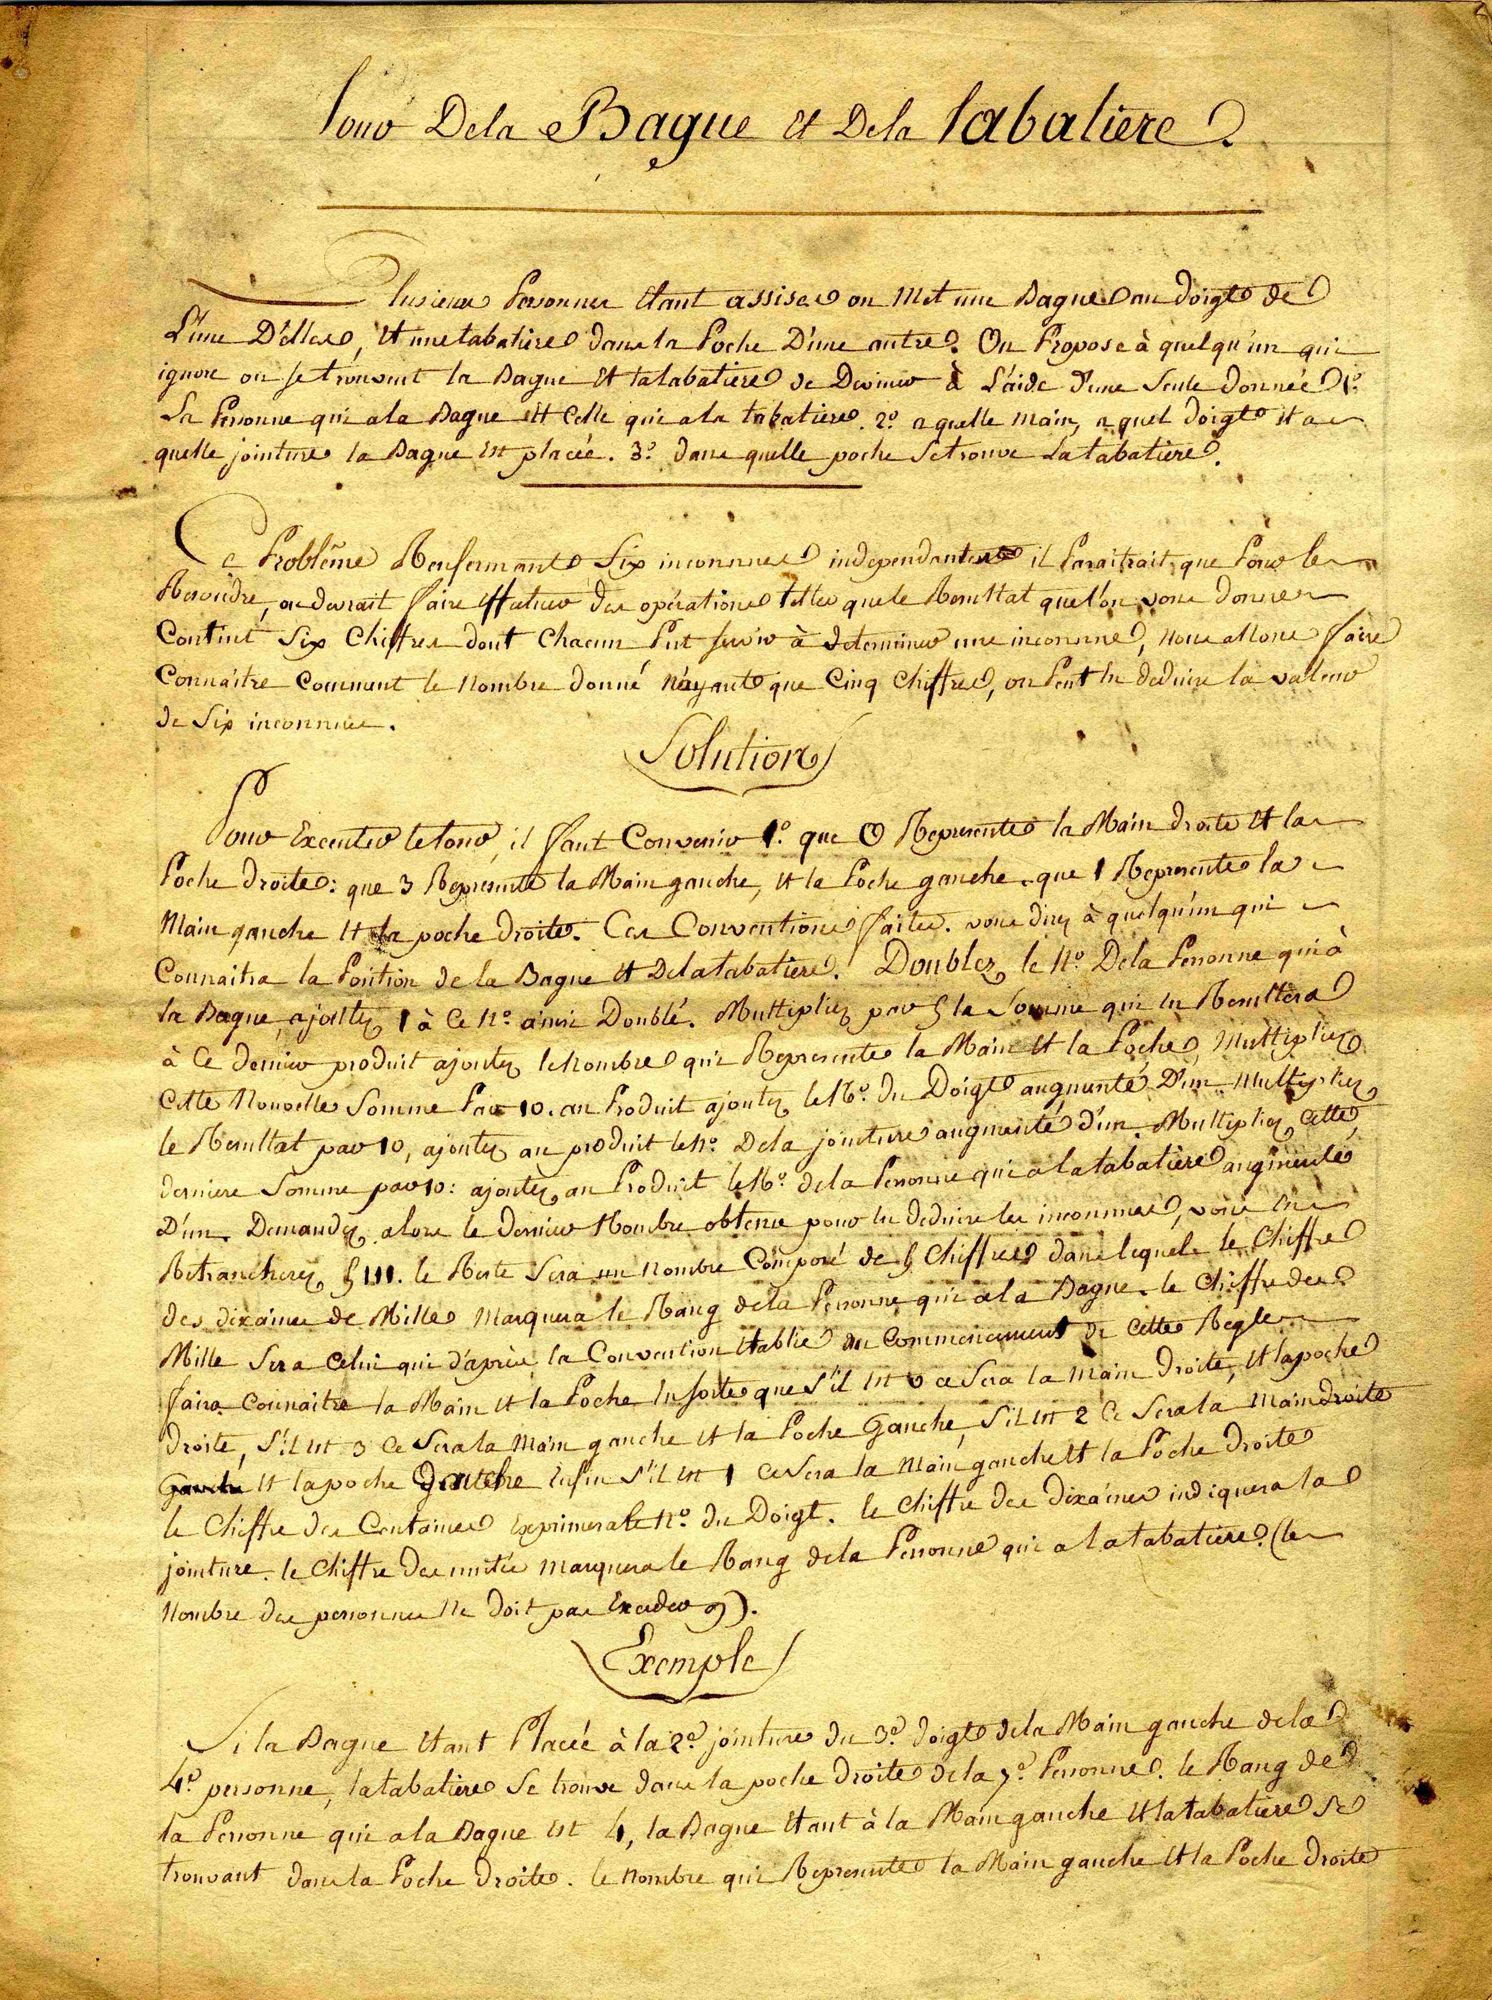 Tour De la Bague et De la tabatiere.
Plusieurs Personnes etant assises on met une Bague au doigt de
L'une D'elles, et une tabatiere dans la Poche D'une autre. On Propose à quelqu'un qui
ignore ou se trouvent la Bague et la tabatiere de Deviner à L'aide d'une seule donnée 1º.
La Personne qui a la Bague et celle qui a la tabatiere. 2º. a quelle main, a quel doigt et a
quelle jointure la Bague est placée. 3º. dans quelle poche se trouve La tabatiere.
Ce Problême Renfermant Six inconnues independantes il Paraitrait que Pour le
Resoudre, on devrait faire effectuer des opérations telles que le Resultat que l'on vous donne
Contint Six Chiffres dont Chacun Put servir à determiner une inconnue, nous allons faire
Connaitre Comment le nombre donné n'ayant que Cinq Chiffres, on Peut en deduire la valeur
de Six inconnues.
Solution
Pour Executer le tour, il faut Convenir 1º. que 0 Represente la Main droite et la
Poche droite: que 3 Represente la Main gauche, et la Poche gauche. que 1 Represente la
Main gauche et la poche droite. Ces Conventions faites. vous direz à quelqu'un qui
Connaitra la Position de la Bague et De la tabatiere. Doublez le nº. De la Personne qui à
la Bague, ajoutez 1 à Ce nº. ainsi Doublé. Multipliez par 5 la Somme qui en Resultera
à Ce dernier produit ajoutez le nombre qui Represente la Main et la Poche, Multipliez
Cette Nouvelle Somme Par 10. au Produit ajoutez le Nº. du Doigt augmenté D'un. Multipliez
le Resultat par 10, ajoutez au produit le nº. De la jointure augmenté d'un. Multipliez Cette
derniere Somme par 10: ajoutez au Produit le Nº. de la Personne qui a la tabatière augmenté
D'un. Demandez alors le dernier Nombre obtenu pour en deduire les inconnues, vous en
Retrancherez 5111. le Reste Sera un nombre Composé de 5 Chiffres dans lequel le Chiffre
des dixaines de Mille Marquera le Rang de la Personne qui a la Bague. le Chiffre des
Mille Sera Celui qui d'après la Convention etablie au Commencement de Cette Regle
faira Connaitre la Main et la Poche En sorte que S'il est 0 ce Sera la Main Droite, et la poche
droite, S'il est 3 Ce Sera la Main gauche et la Poche Gauche, S'il est 2 Ce Sera la Main droite
et la poche Gauche Enfin S'il est 1 ce Sera la Main gauche et la Poche droite
le Chiffre des Centaines Exprimera le nº. du Doigt. le Chiffre des dixaines indiquera la
jointure. le Chiffre des unités Marquera le Rang de la Personne qui a la tabatiere. (le
Nombre des personnes ne doit pas Exceder 9).
Exemple
Si la Bague etant Placée à la 2e. jointure du 3e. doigt de la Main gauche de la
4e. personne, la tabatiere Se trouve dans la poche droite de la 7e. Personne. le Rang de
la Personne qui a la Bague est 4, la Bague etant à la Main gauche et la tabatiere Se
trouvant dans la Poche droite. le nombre qui Represente la Main gauche et la Poche droite